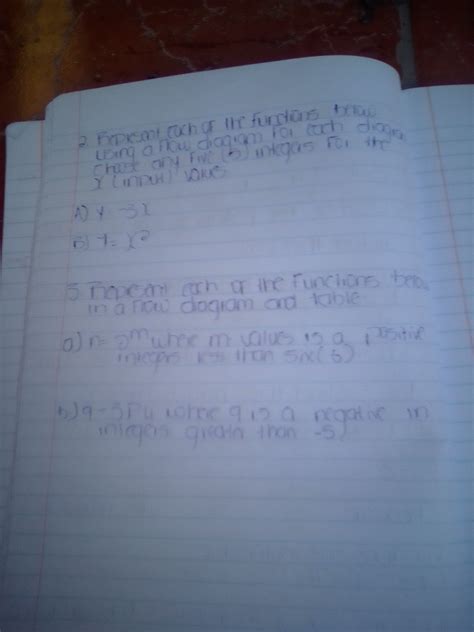 2. Represent each of the functions below
using a flow diagram For each diagram
choose any Five (5) integers For the
x (input) value
A) y -3x
B) y = x²
3 Represent each of the Functions below
in a flow diagram and table
a) n= 2ᵐ where m values is a positive
integers less than six (6)
b) q - where q is a negative in
integers greath than -5)